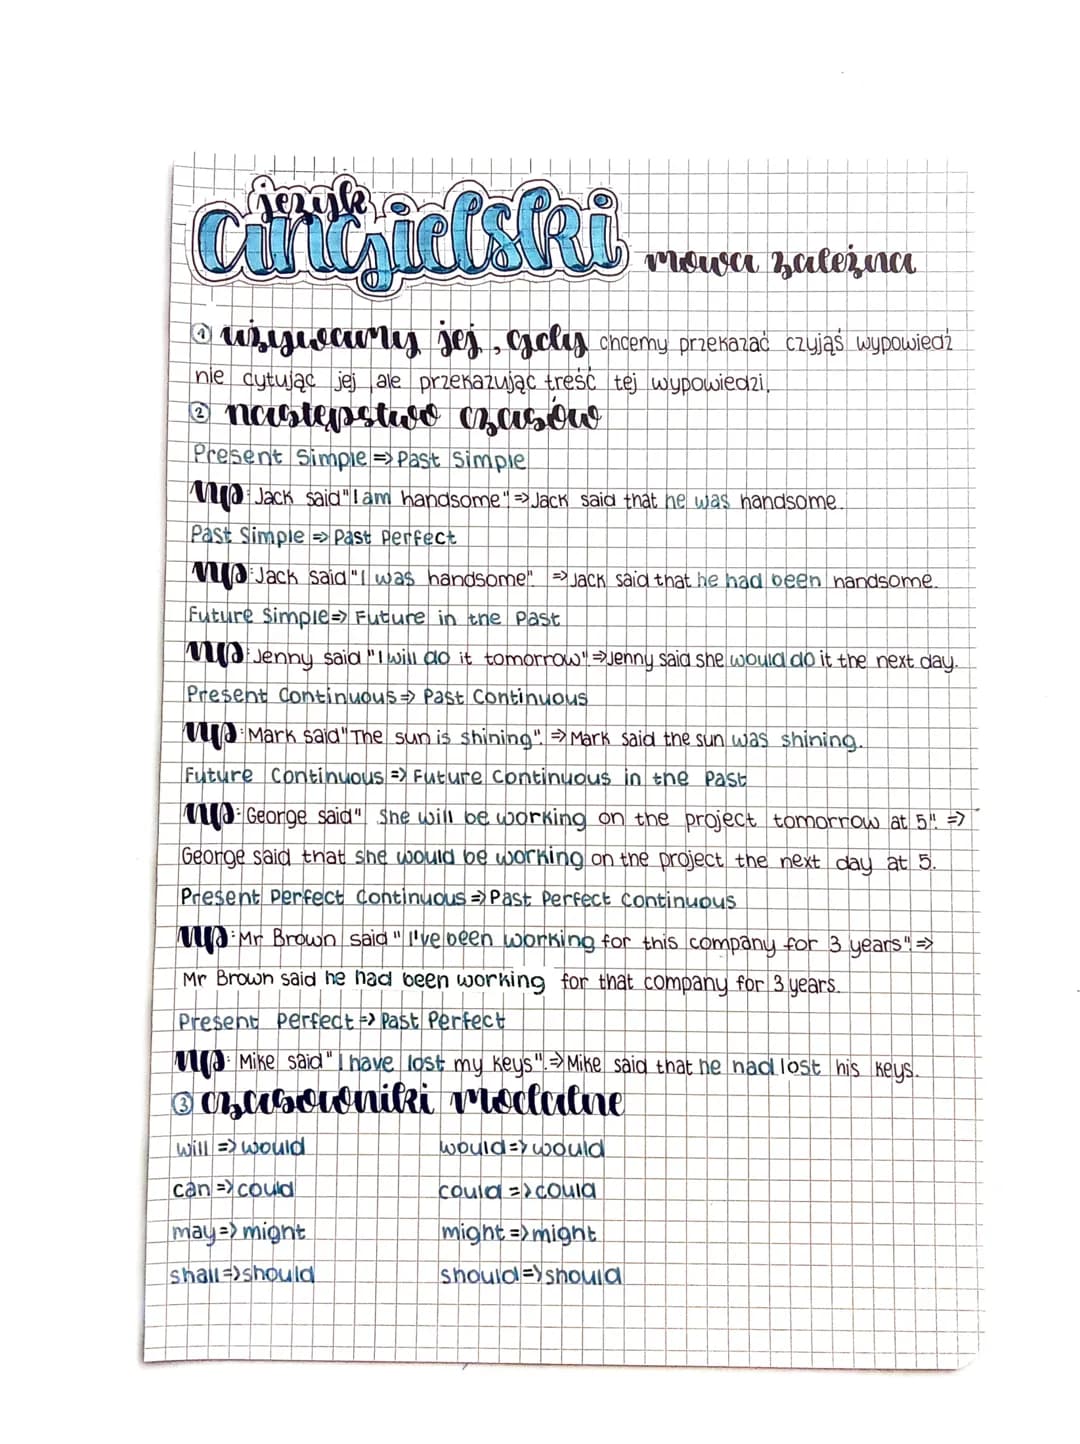 język
angielski mowa zależna
① używamy jej, gdy chcemy przekazać czyjąś wypowiedź
nie cytując jej, ale przekazując treść tej wypowiedzi.
② następstwo czasów
Present Simple => Past Simple
np: Jack said "I am handsome" => Jack said that he was handsome.
Past Simple => Past Perfect
np: Jack said "I was handsome". => Jack said that he had been handsome.
Future Simple => Future in the Past
np: Jenny said "I will do it tomorrow" => Jenny said she would do it the next day.
Present Continuous => Past Continuous
np: Mark said "The sun is shining". => Mark said the sun was shining.
Future Continuous => Future Continuous in the Past
np: George said " She will be working on the project tomorrow at 5". =>
George said that she would be working on the project the next day at 5.
Present Perfect Continuous => Past Perfect Continuous
np: Mr Brown said " I've been working for this company for 3 years". =>
Mr Brown said he had been working for that company for 3 years.
Present Perfect => Past Perfect
np: Mike said " I have lost my keys". => Mike said that he had lost his keys.
③ czasowniki modalne
will => would would => would
can => could could => could
may => might might => might
shall => should should => should